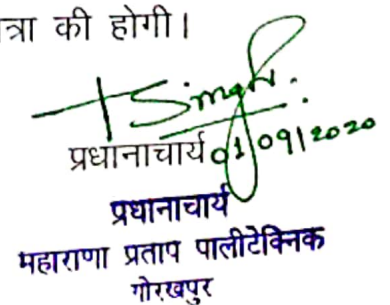 त्रा की होगी।
Singh.
प्रधानाचार्य 01/09/2020
प्रधानाचार्य
महाराणा प्रताप पालीटेक्निक
गोरखपुर